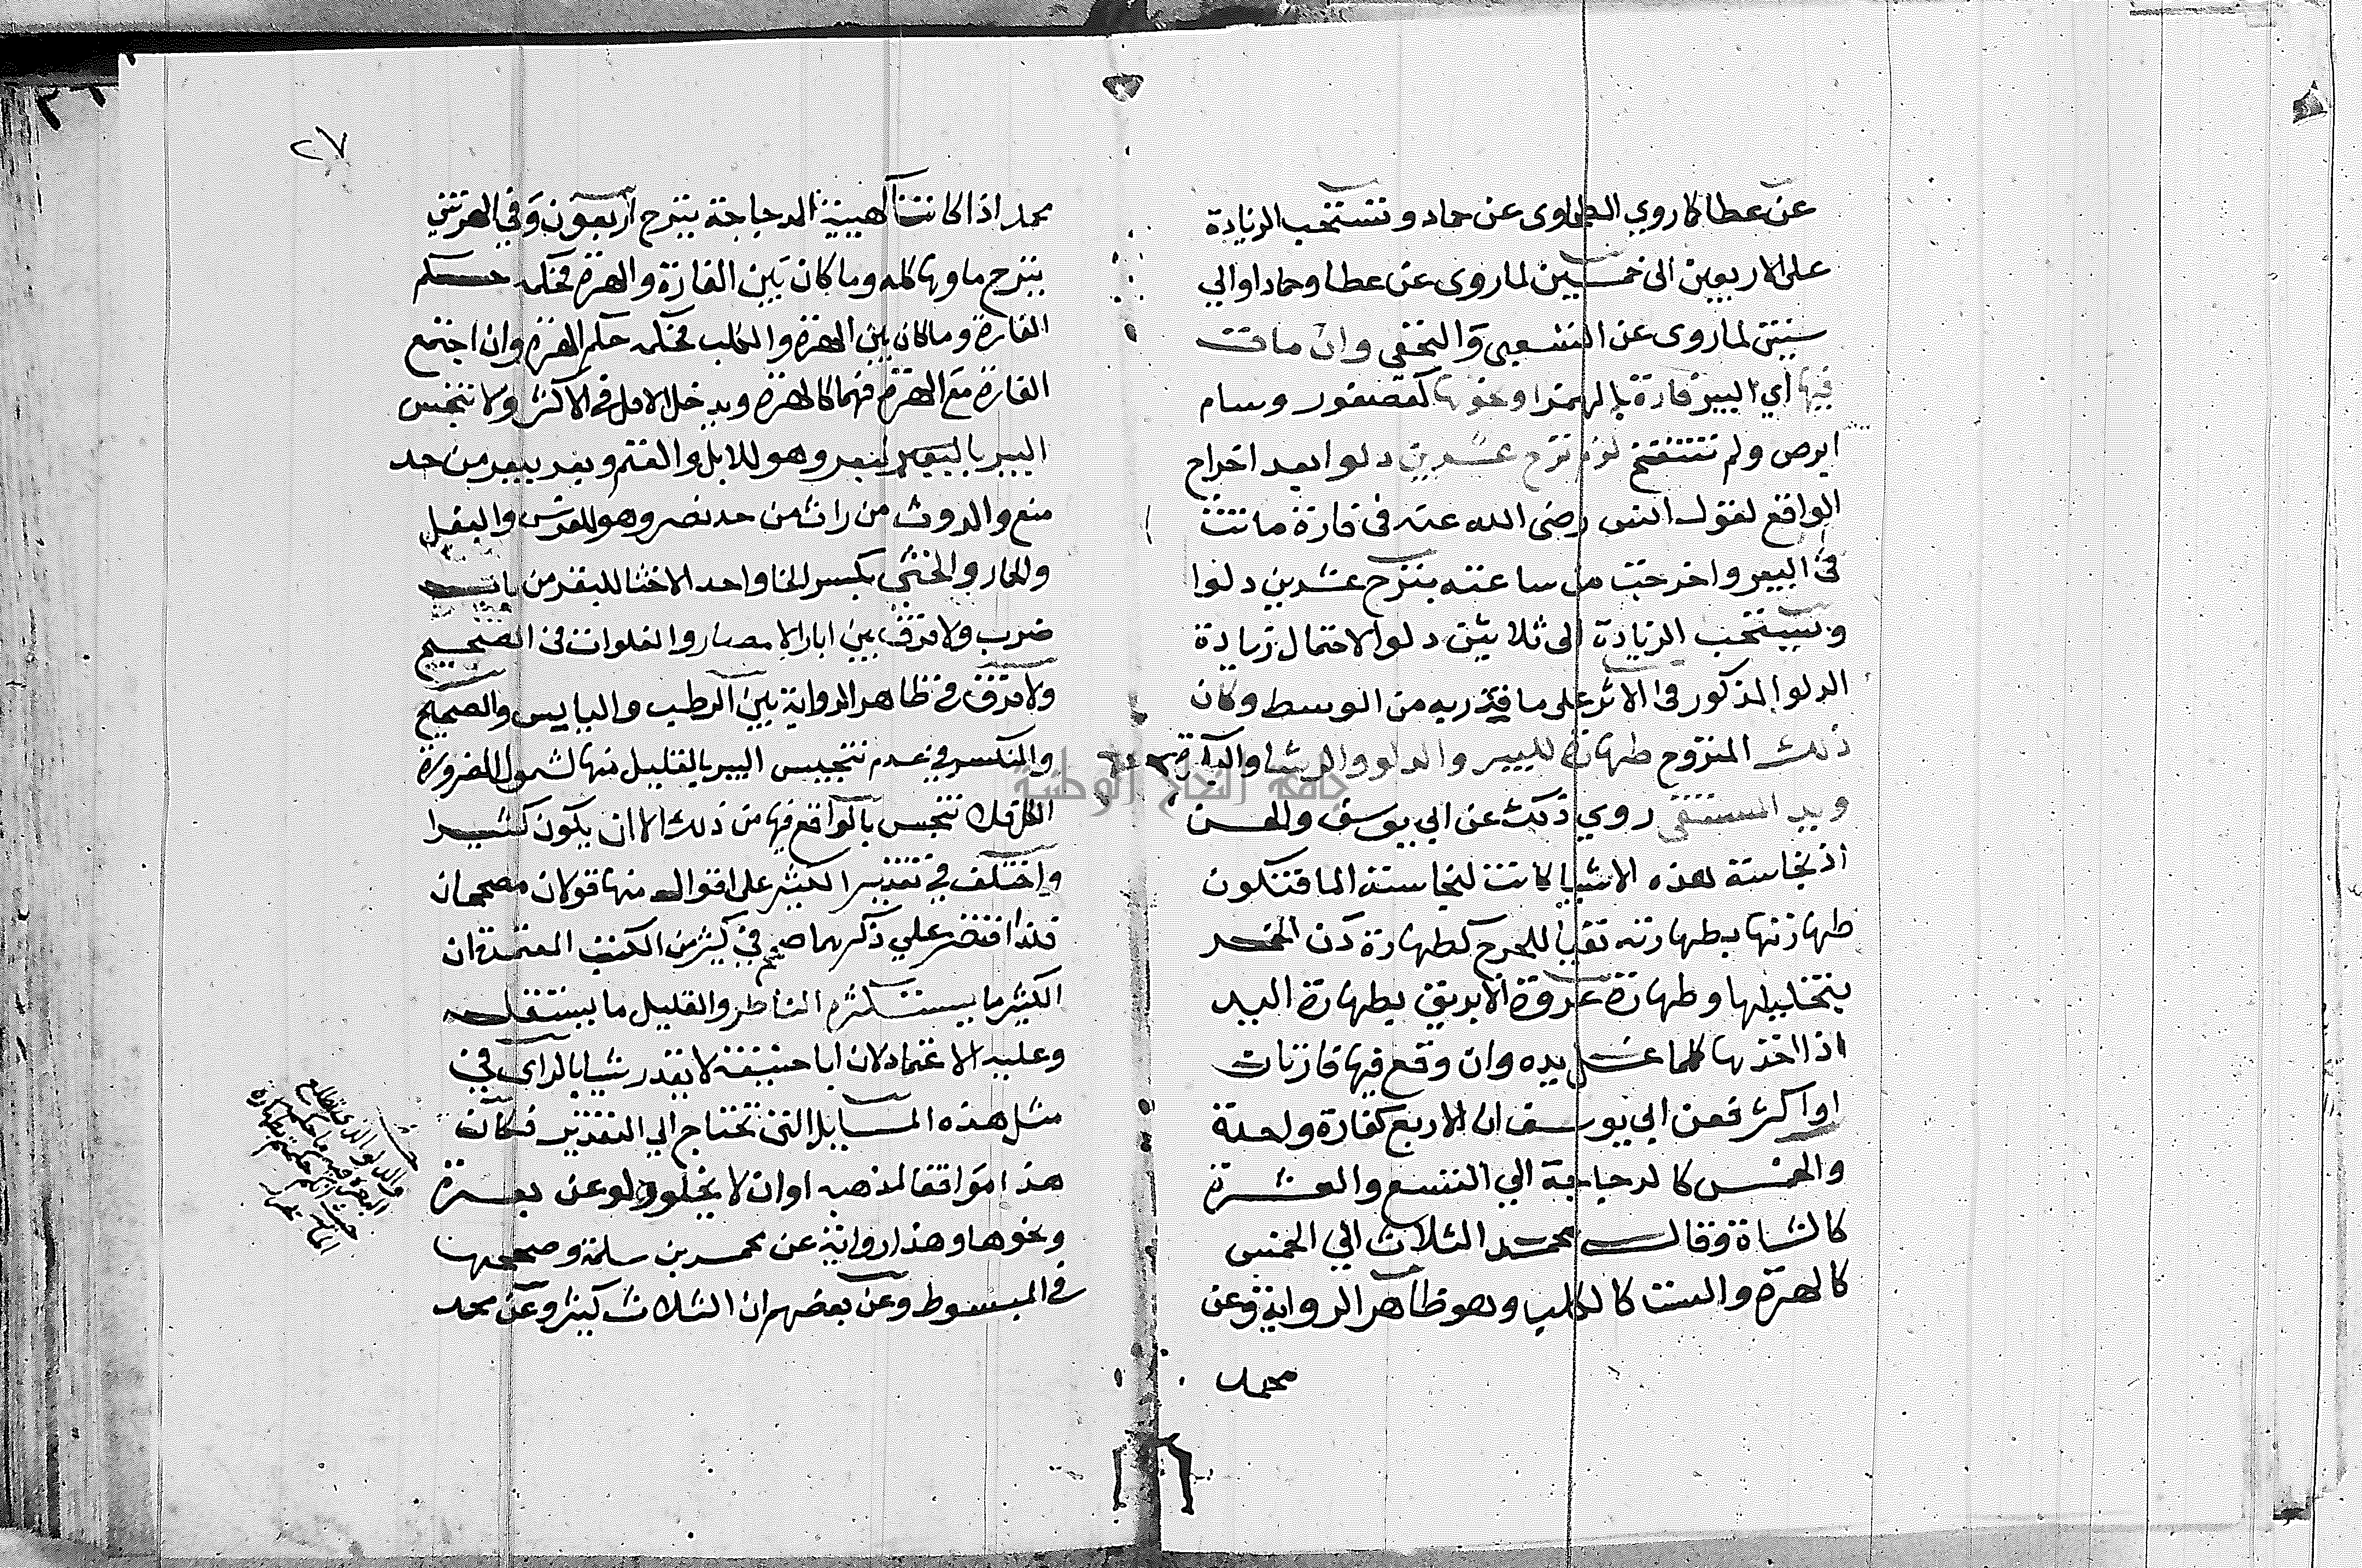 عن عطا كما روي الطحاوى عن حماد وتستحب الزيادة
على الاربعين الى خمسين لما روى عن عطا وحماد او الي
ستين لما روى عن الشعبى والنخعى وان ماتت
فيها أي البير فارة بالهمز او نحوها كعصفور وسام
ابرص ولم تنتفخ لزم نزح عشرين دلوا بعد اخراج
الواقع لقول انس رضى الله عنه فى فارة ماتت
فى البير واخرجت من ساعته ينزح عشرين دلوا
وتستحب الزيادة الى ثلاثين دلوا لاحتمال زيادة
الدلو المذكور فى الاثر على ما قدر به من الوسط وكان
ذلك المنزوح طهارة للبير والدلو والرشا والبكرة
ويد المستقى روي ذلك عن ابي يوسف والحسن
اذ نجاسة هذه الاشيا كانت لنجاسة الما فتكون
طهارتها بطهارته نفيا للحرج كطهارة دن الخمر
بتخليلها وطهارة عروة الابريق بطهارة اليد
اذا اخذها كلما غسل يده وان وقع فيها فارتان
او اكثر فعن ابي يوسف ان الاربع كفارة واحدة
والخمس كالدجاجة الي التسع والعشرة
كالشاة وقال محمد الثلاث الي الخمس
كالهرة والست كالكلب وهو ظاهر الرواية وعن
محمد
٢٧
محمد اذا كانتا كهيئة الدجاجة ينزح اربعون وفي الهرتين
ينزح ماوها كله وما كان بين الفارة والهرة فحكمه حكم
الفارة وما كان بين الهرة والكلب فحكمه حكم الهرة وان اجتمع
الفارة مع الهرة فهما كالهرة ويدخل الاقل فى الاكثر ولا تنجس
البير بالبعر وهو للابل والغنم وبعر يبعر من حد
منع والروث من راث من حد نصر وهو للفرس والبغل
والحمار والخثي بكسر الخا واحد الاخثا للبقر من باب
ضرب ولا فرق بين ابار الامصار والفلوات فى الصحيح
ولا فرق فى ظاهر الرواية بين الرطب واليابس والصحيح
والمنكسر في عدم تنجيس البير بالقليل منها لشمول الضرورة
الكل فلا تنجس بالواقع فيها من ذلك الا ان يكون كثيرا
واختلف في تقدير الكثير على اقوال منها قولان مصححان
فلذا اقتصر علي ذكرهما صح في كثير من الكتب المعتمدة ان
الكثير ما يستكثره الناظر والقليل ما يستقله
وعليه الاعتماد لان ابا حنيفة لا يقدر شيا بالراى في
مثل هذه المسايل التى تحتاج الي التقدير فكان
هذا موافقا لمذهبه او ان لا يخلو دلو عن بعرة
ونحوها وهذا رواية عن محمد بن سلمة وصححها
في المبسوط وعن بعضهم ان الثلاث كثير وعن محمد
جامعة النجاح الوطنية